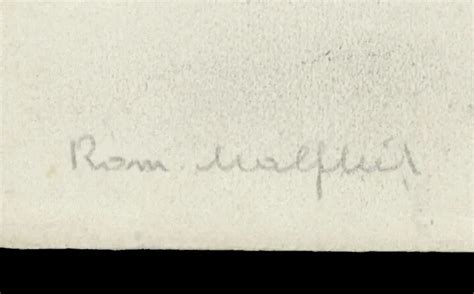 Rom. Malfliet